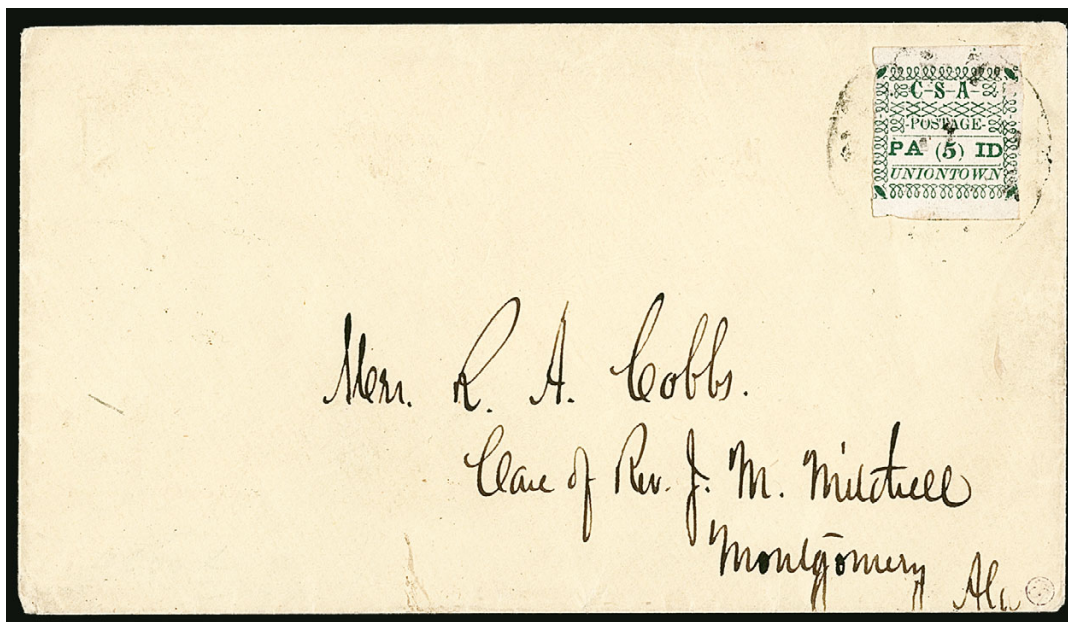 C-S-A-
-POSTAGE-
PA (5) ID
UNIONTOWN
Mrs. R. A. Cobbs.
Care of Rev. J. M. Mitchell
Montgomery
Ala